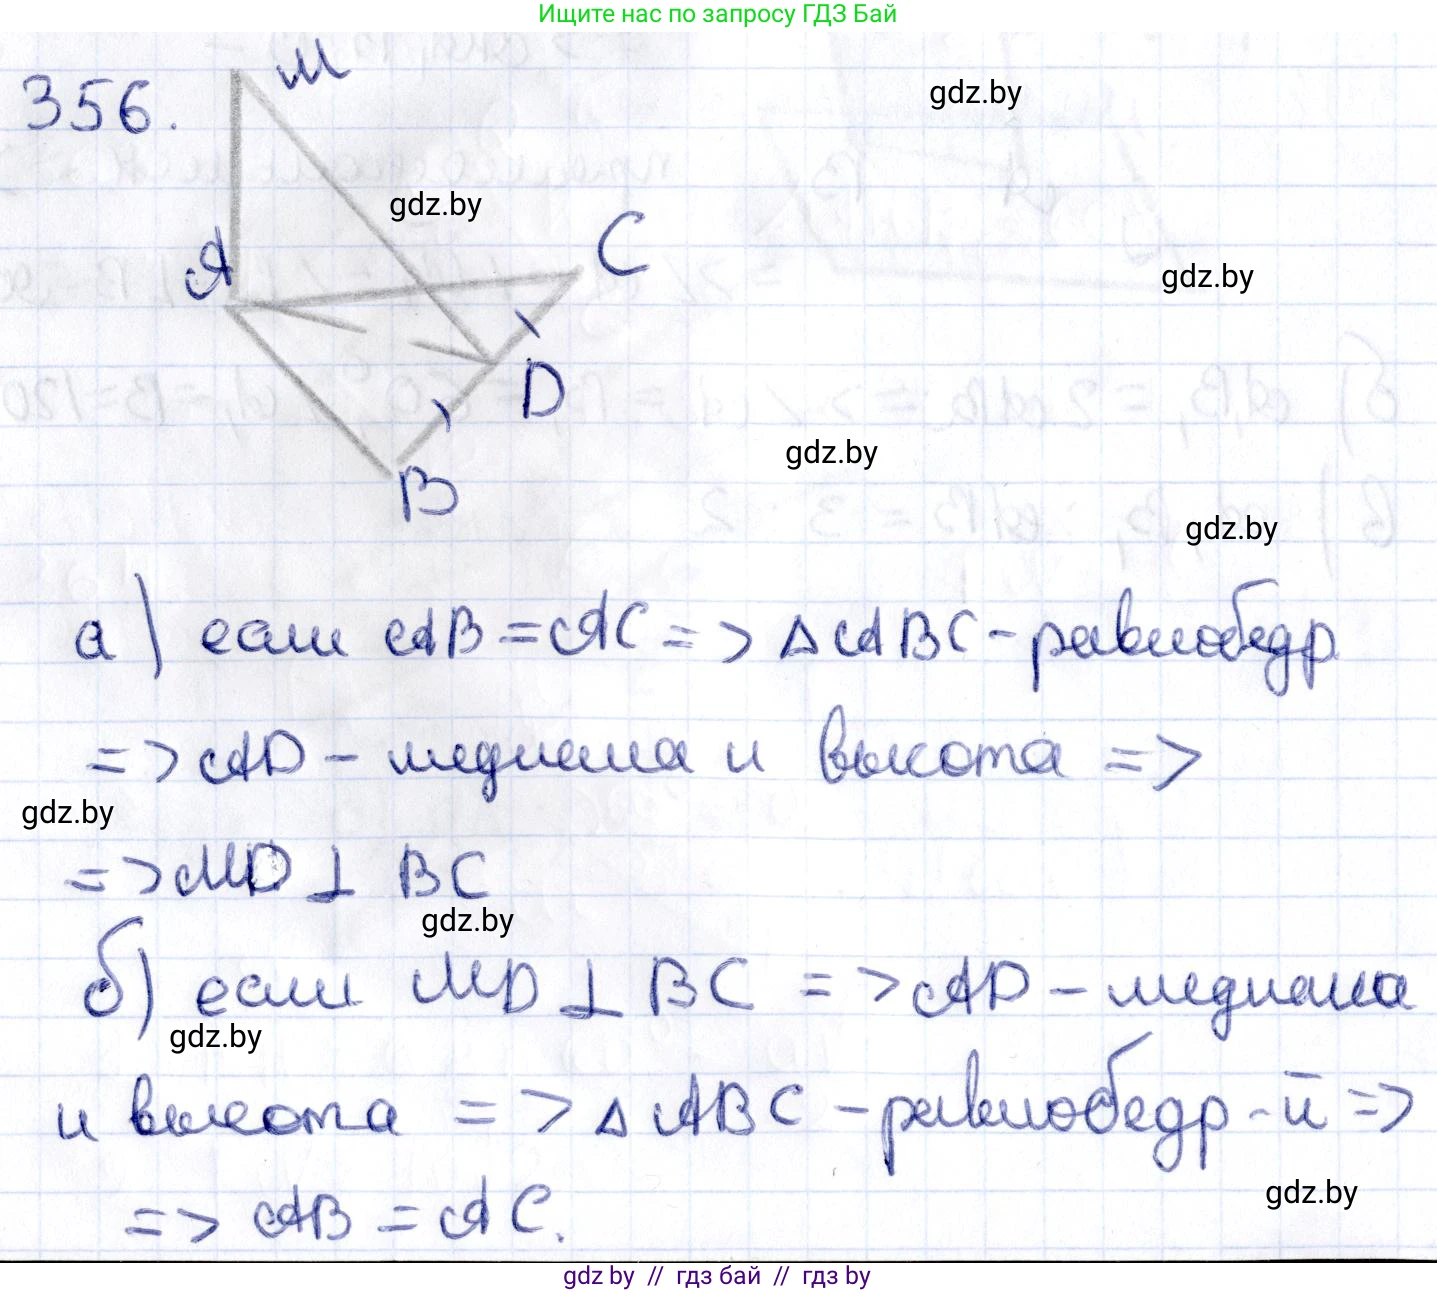 Ищите нас по запросу ГДЗ Бай
356.
М
gdz.by
gdz.by
С
А
gdz.by
D
gdz.by
В
gdz.by
а) если АВ = АС => △ АВС - равнобедр.
=> AD - медиана и высота =>
gdz.by
=> MD ⊥ BC
gdz.by
б) если MD ⊥ BC => AD - медиана
gdz.by
и высота => △ АВС - равнобедр-й =>
gdz.by
=> АВ = АС.
gdz by // гдз бай // гдз by